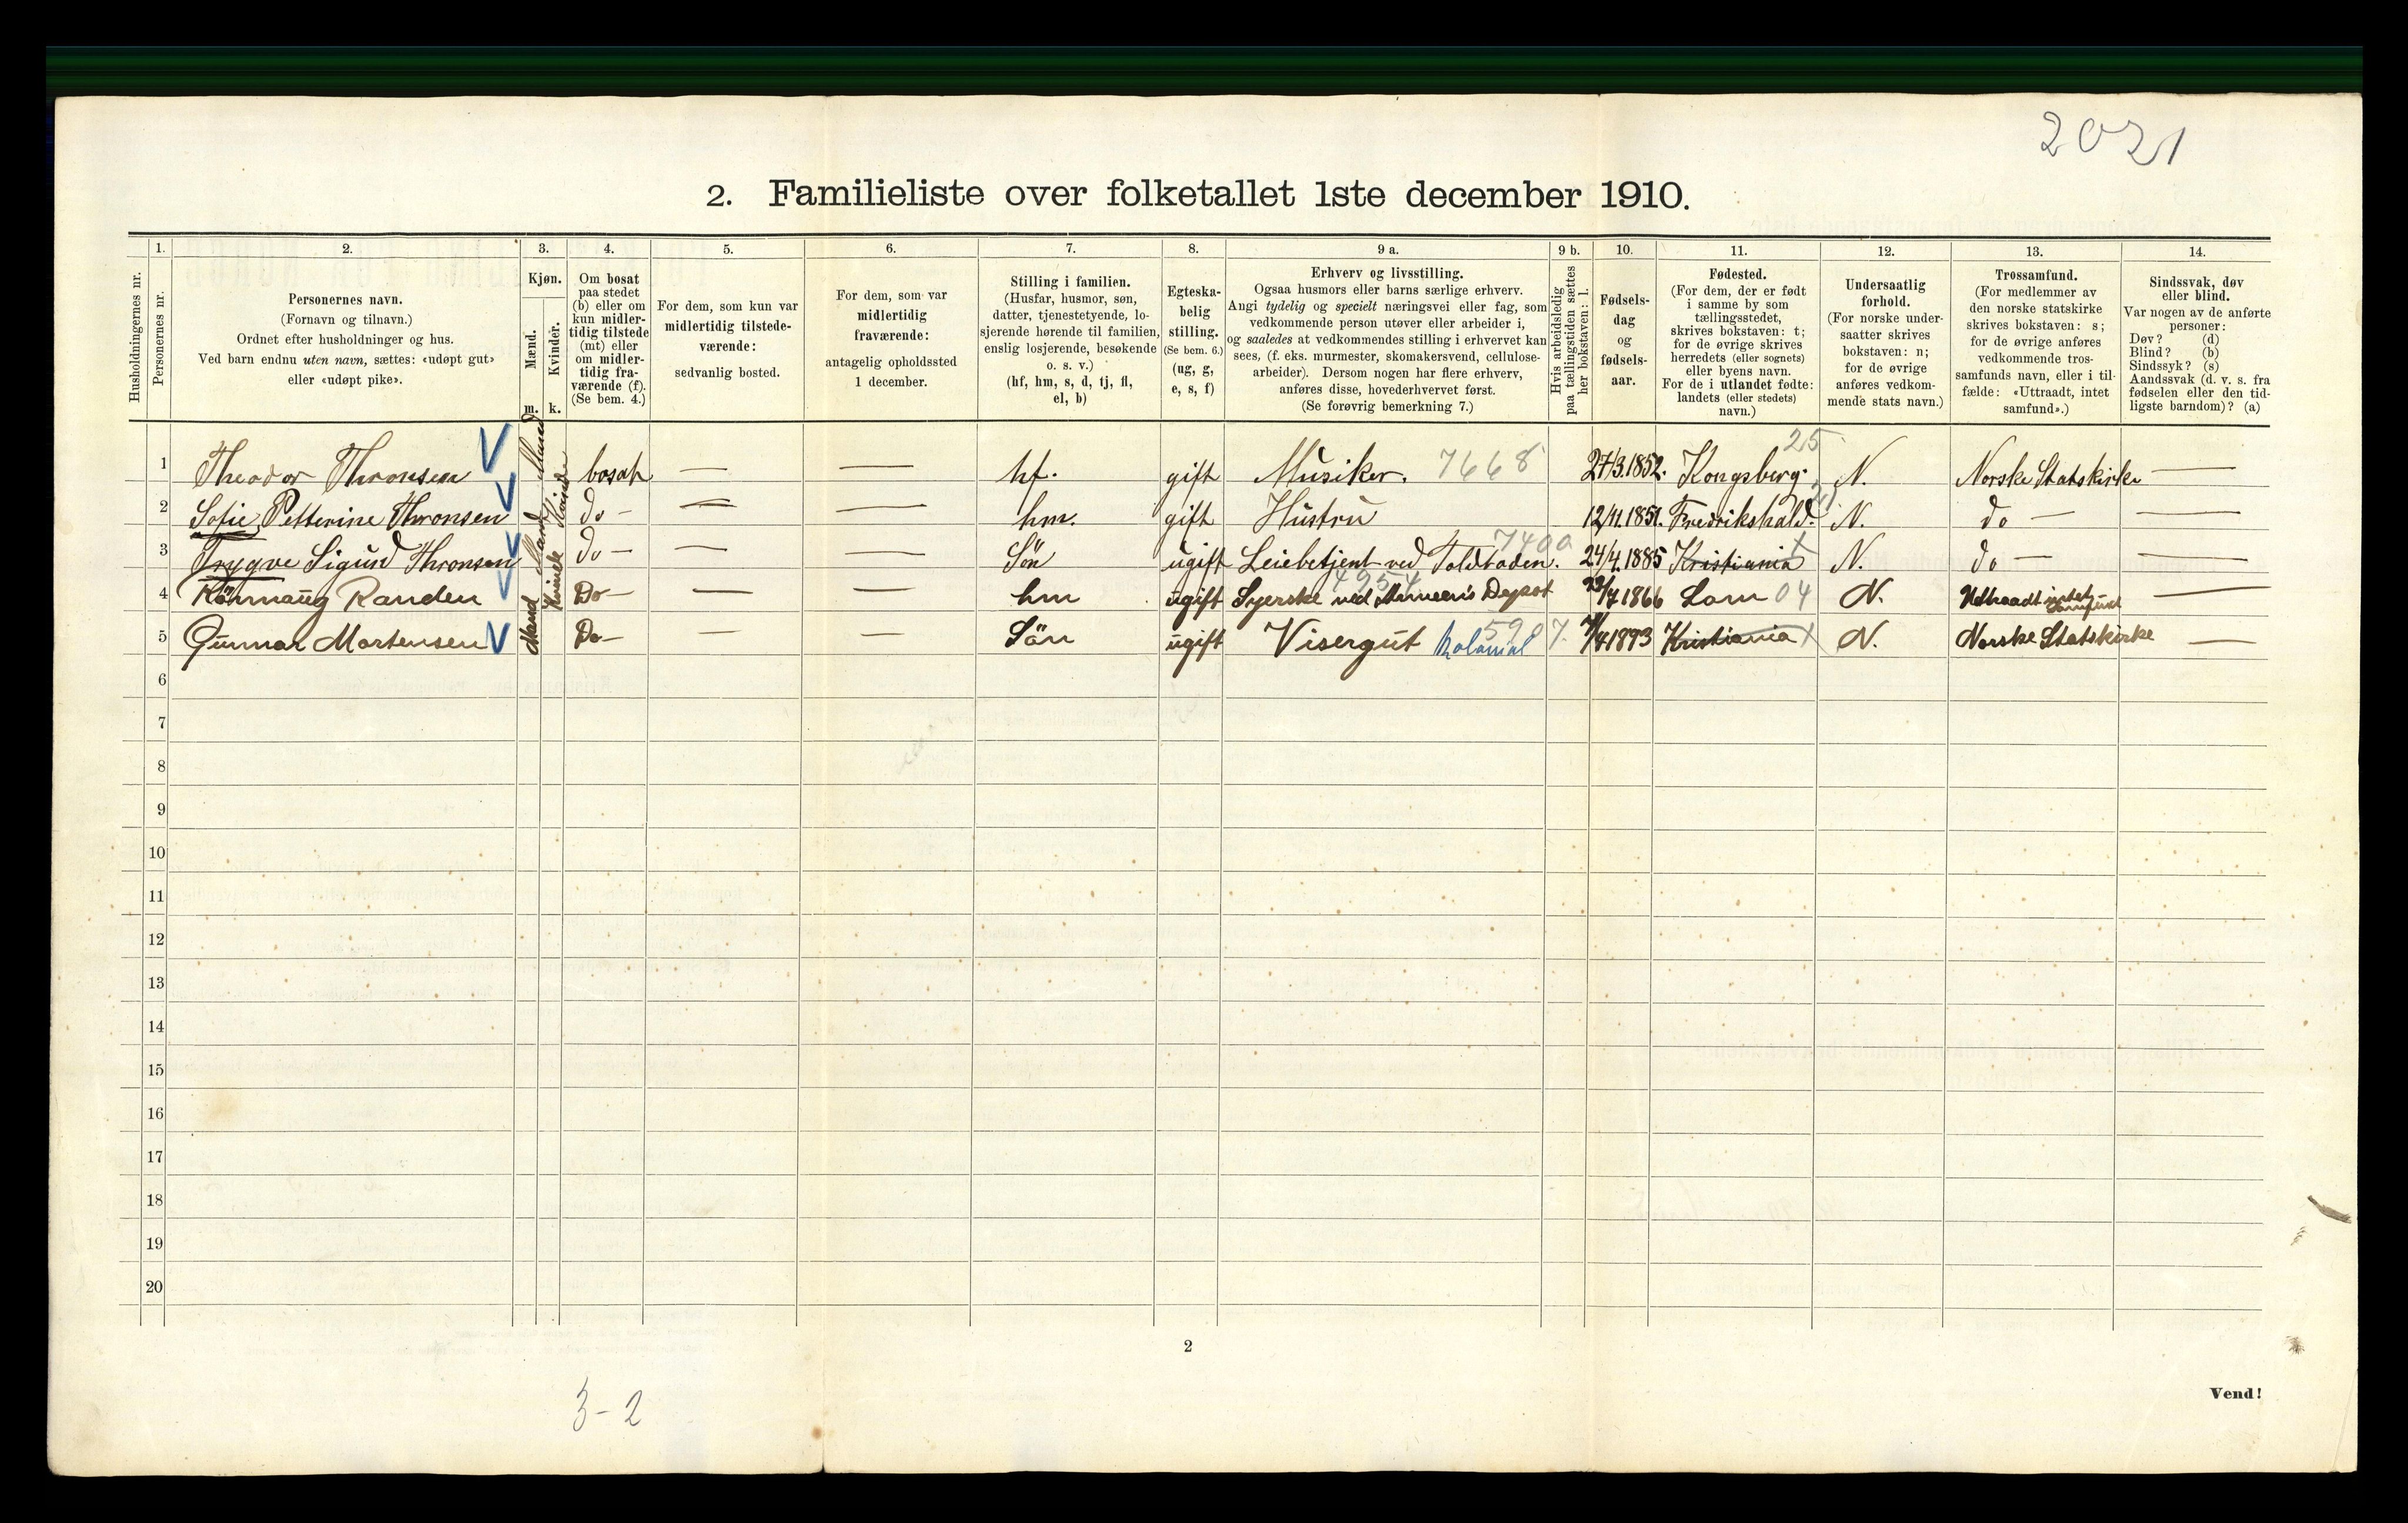 2021
2. Familieliste over folketallet 1ste december 1910.
Husholdningernes nr.
1.
Personernes nr.
2.
Personernes navn.
(Fornavn og tilnavn.)
Ordnet efter husholdninger og hus.
Ved barn endnu uten navn, sættes: «udøpt gut»
eller «udøpt pike».
3.
Kjøn.
Mænd.
Kvinder.
m. k.
4.
Om bosat
paa stedet
(b) eller om
kun midler-
tidig tilstede
(mt) eller
om midler-
tidig fra-
værende (f).
(Se bem. 4.)
5.
For dem, som kun var
midlertidig tilstede-
værende:
sedvanlig bosted.
6.
For dem, som var
midlertidig
fraværende:
antagelig opholdssted
1 december.
7.
Stilling i familien.
(Husfar, husmor, søn,
datter, tjenestetyende, lo-
sjerende hørende til familien,
enslig losjerende, besøkende
o. s. v.)
(hf, hm, s, d, tj, fl,
el, b)
8.
Egteska-
belig
stilling.
(Se bem. 6.)
(ug, g,
e, s, f)
9 a.
Erhverv og livsstilling.
Ogsaa husmors eller barns særlige erhverv.
Angi tydelig og specielt næringsvei eller fag, som
vedkommende person utøver eller arbeider i,
og saaledes at vedkommendes stilling i erhvervet kan
sees, (f. eks. murmester, skomakersvend, cellulose-
arbeider). Dersom nogen har flere erhverv,
anføres disse, hovederhvervet først.
(Se forøvrig bemerkning 7.)
9 b.
Hvis arbeidsledig
paa tællingstiden sættes
her bokstaven: l.
10.
Fødsels-
dag
og
fødsels-
aar.
11.
Fødested.
(For dem, der er født
i samme by som
tællingsstedet,
skrives bokstaven: t;
for de øvrige skrives
herredets (eller sognets)
eller byens navn.
For de i utlandet fødte:
landets (eller stedets)
navn.)
12.
Undersaatlig
forhold.
(For norske under-
saatter skrives
bokstaven: n;
for de øvrige
anføres vedkom-
mende stats navn.)
13.
Trossamfund.
(For medlemmer av
den norske statskirke
skrives bokstaven: s;
for de øvrige anføres
vedkommende tros-
samfunds navn, eller i til-
fælde: «Uttraadt, intet
samfund».)
14.
Sindssvak, døv
eller blind.
Var nogen av de anførte
personer:
Døv? (d)
Blind? (b)
Sindssyk? (s)
Aandssvak (d. v. s. fra
fødselen eller den tid-
ligste barndom)? (a)
1 Theodor Thronsen Mand bosat — — hf. gift Musiker. 7668 27/3.1852. Kongsberg. 25 N. Norske Statskirke —
2 Sofie Petterine Thronsen Kvinde do — — — hm. gift Hustru 12/11.1851. Fredrikshald. N. do — —
3 Trygve Sigurd Thronsen Mand do — — — Sön ugift Leiebetjent ved Toldboden. 7400 24/4.1885 Kristiania N. do — —
4 Rönnaug Randen Kvinde Do — — — hm ugift Syerske ved Armeens Depot 4954 1866 Lom 04 N. Udtraadt intet samfund —
5 Gunnar Mortensen Mand Do — — — Sön ugift Visergut Kolonial 5907. 1893 Kristiania N. Norske Statskirke —
6
7
8
9
10
11
12
13
14
15
16
17
18
19
20
2
Vend!
3-2